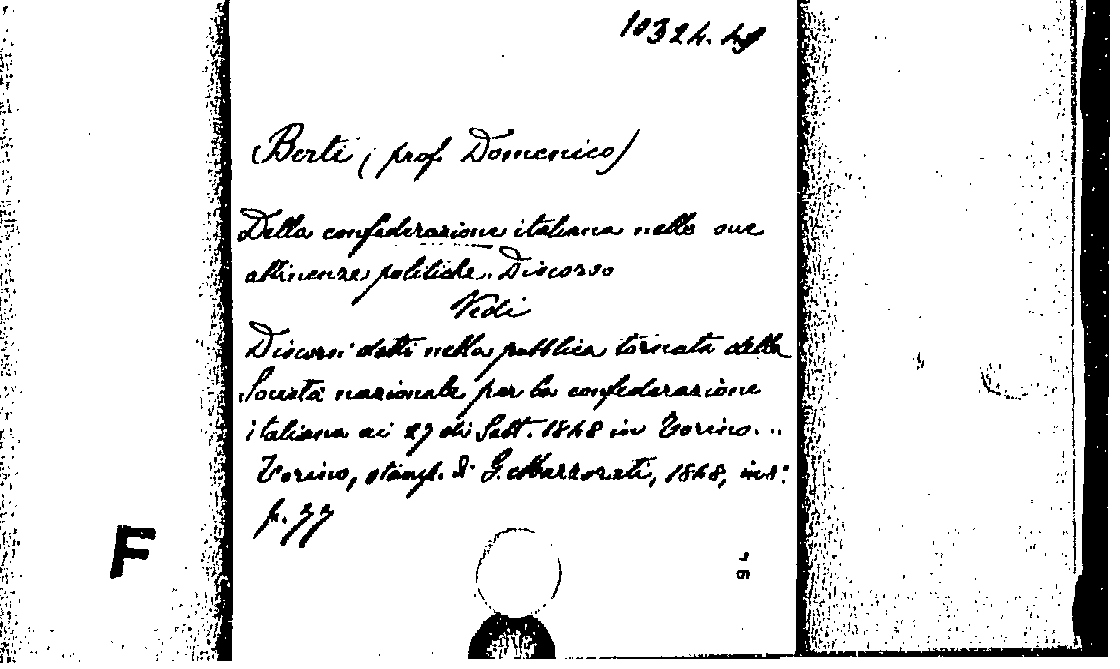 10324. 49
Berti (prof. Domenico)
Della confederazione italiana nelle sue
attinenze politiche. Discorso
Vedi
Discorsi detti nella pubblica tornata della
Società nazionale per la confederazione
italiana ai 27 di Sett. 1848 in Torino...
Torino, stamp. di G. Marzorati, 1848, in 8°
p. 77
F